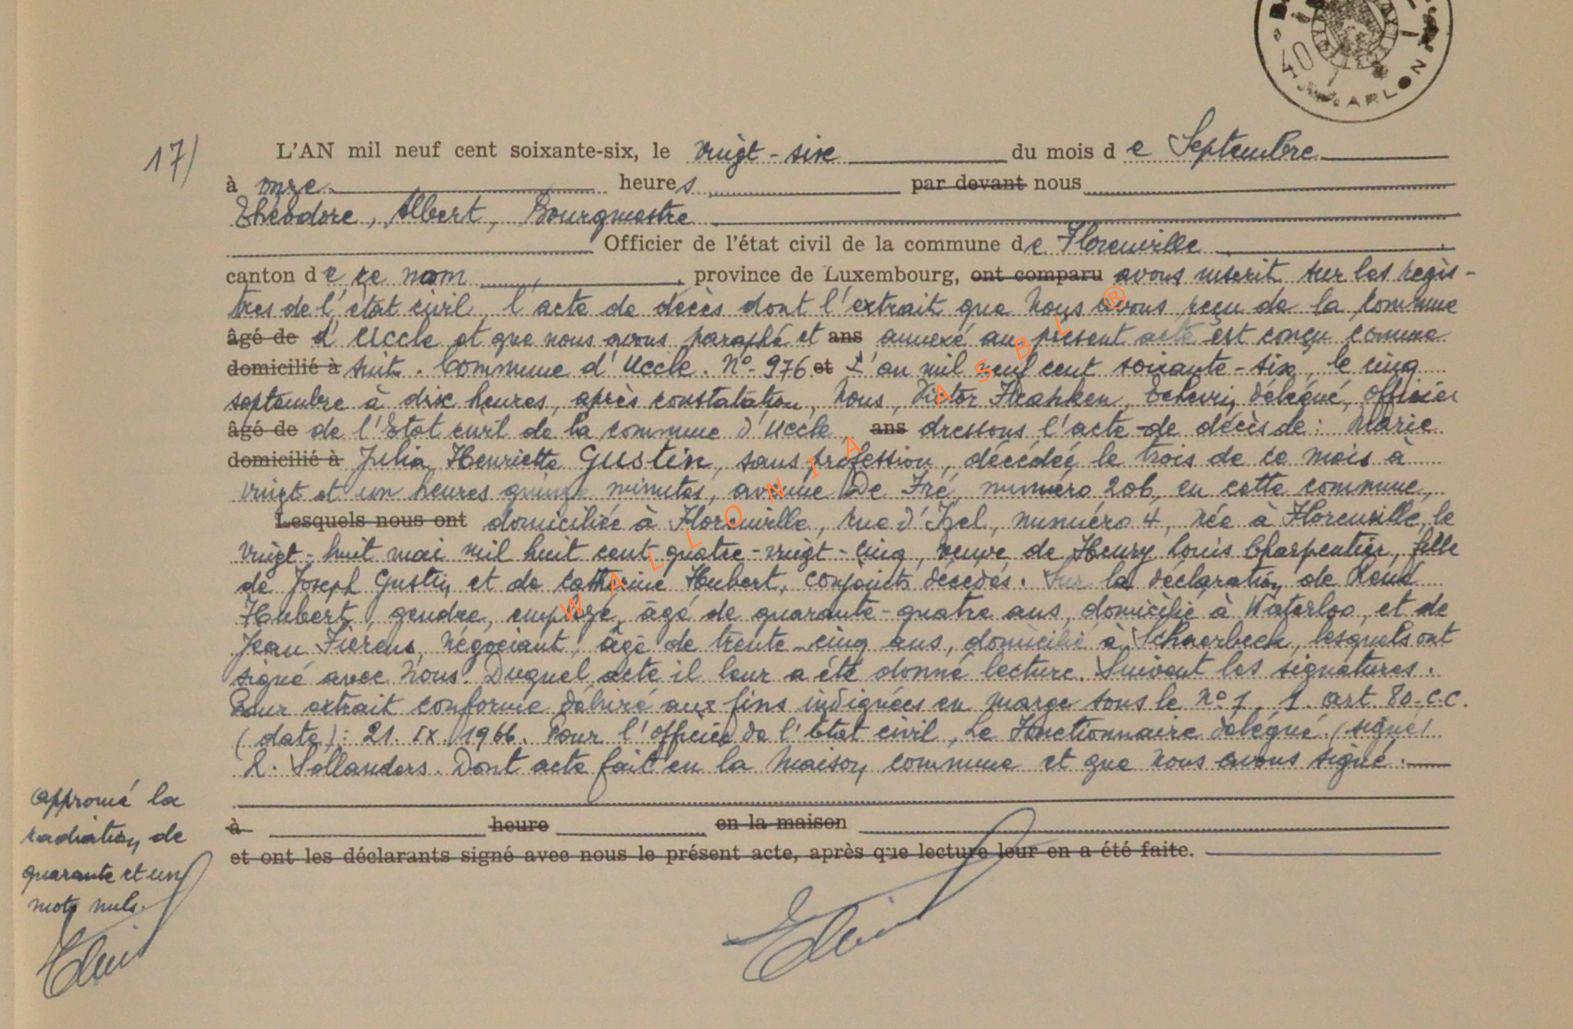 ARLON
17/ L'AN mil neuf cent soixante-six, le vingt-six du mois de Septembre
à onze heures par devant nous
Théodore, Albert, Bourgmestre
Officier de l'état civil de la commune de Florenville
canton de ce nom, province de Luxembourg, ont comparu avons inscrit sur les regis-
tres de l'état civil l'acte de décès dont l'extrait que nous avons reçu de la Commune
âgé de d'Uccle et que nous avons paraphé et ans annexé au présent acte est conçu comme
domicilié à suit. Commune d'Uccle. N° 976 et L'an mil neuf cent soixante-six, le cinq
septembre à dix heures, après constatation, Nous, Victor Franken, Echevin délégué, Officier
âgé de de l'Etat civil de la commune d'Uccle, ans dressons l'acte de décès de: Marie
domicilié à Julia Henriette Gustin, sans profession, décédée le trois de ce mois à
vingt et un heures quinze minutes, avenue De Fré, numéro 206, en cette commune,
Lesquels nous ont domiciliée à Florenville, rue d'Izel, numéro 4, née à Florenville, le
vingt-huit mai mil huit cent quatre-vingt-cinq, veuve de Henry Louis Charpentier, fille
de Joseph Gustin et de Catherine Hubert, conjoints décédés. Sur la déclaration de René
Hubert, gendre, employé, âgé de quarante-quatre ans, domicilié à Waterloo, et de
Jean Fierens, négociant, âgé de trente-cinq ans, domicilié à Schaerbeek, lesquels ont
signé avec Nous. Duquel acte il leur a été donné lecture. Suivent les signatures.
Pour extrait conforme délivré aux fins indiquées en marge sous le n° 1. 1. art 80.C.C.
(date): 21.IX.1966. Pour l'officier de l'Etat civil, Le Fonctionnaire délégué (signé)
Dont acte fait en la Maison commune et que nous avons signé.
à heure en la maison
et ont les déclarants signé avec nous le présent acte, après que lecture leur en a été faite.
approuvé la
radiation de
quarante et un
mots nuls.
WALLONIA ASBL ®